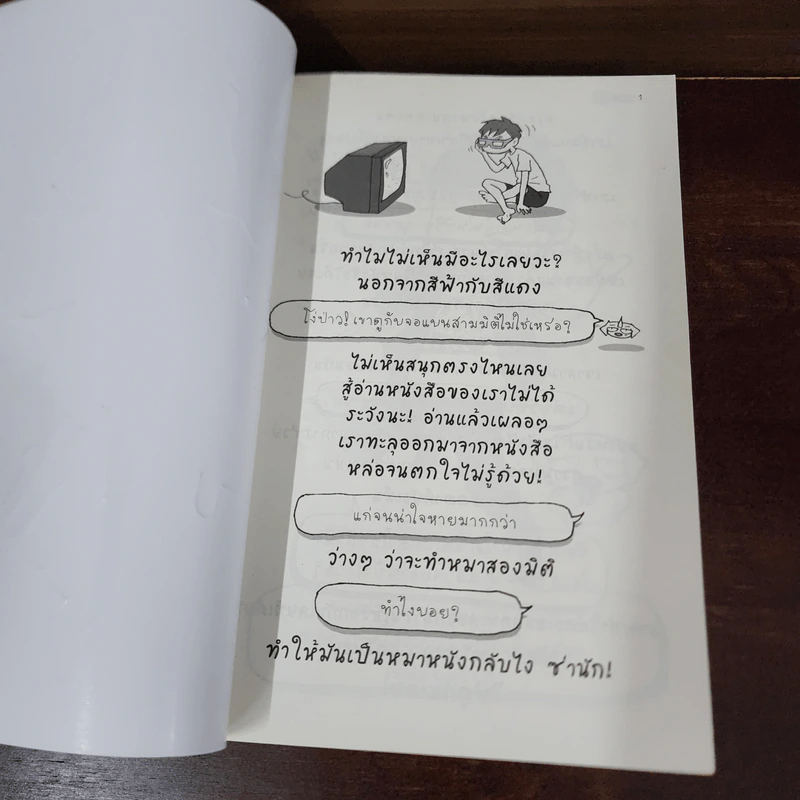 1
ทำไมไม่เห็นมีอะไรเลยวะ?
นอกจากสีฟ้ากับสีแดง
โง่ป่าว! เขาดูกับจอแบนสามมิติไม่ใช่เหรอ?
ไม่เห็นสนุกตรงไหนเลย
สู้อ่านหนังสือของเราไม่ได้
ระวังนะ! อ่านแล้วเผลอๆ
เราทะลุออกมาจากหนังสือ
หล่อจนตกใจไม่รู้ด้วย!
แก่จนน่าใจหายมากกว่า
ว่างๆ ว่าจะทำหมาสองมิติ
ทำไงบอย?
ทำให้มันเป็นหมาหนังกลับไง ซ่านัก!